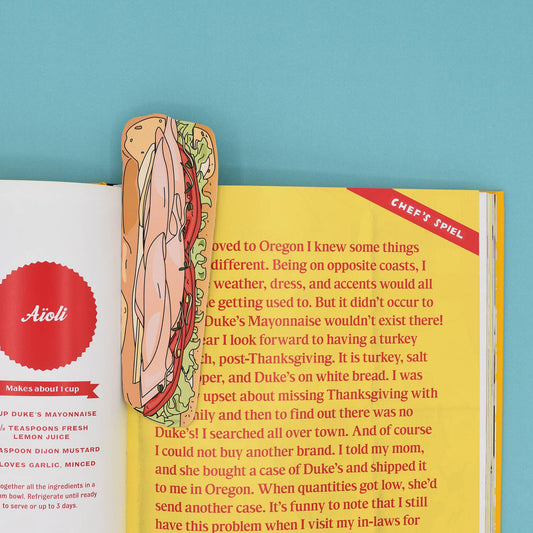 Aïoli
Makes about 1 cup
UP DUKE'S MAYONNAISE
TEASPOONS FRESH
LEMON JUICE
ASPOON DIJON MUSTARD
LOVES GARLIC, MINCED
ogether all the ingredients in a
um bowl. Refrigerate until ready
to serve or up to 3 days.
CHEF'S SPIEL
oved to Oregon I knew some things
different. Being on opposite coasts, I
weather, dress, and accents would all
e getting used to. But it didn't occur to
Duke's Mayonnaise wouldn't exist there!
ear I look forward to having a turkey
ch, post-Thanksgiving. It is turkey, salt
pper, and Duke's on white bread. I was
upset about missing Thanksgiving with
mily and then to find out there was no
Duke's! I searched all over town. And of course
I could not buy another brand. I told my mom,
and she bought a case of Duke's and shipped it
to me in Oregon. When quantities got low, she'd
send another case. It's funny to note that I still
have this problem when I visit my in-laws for